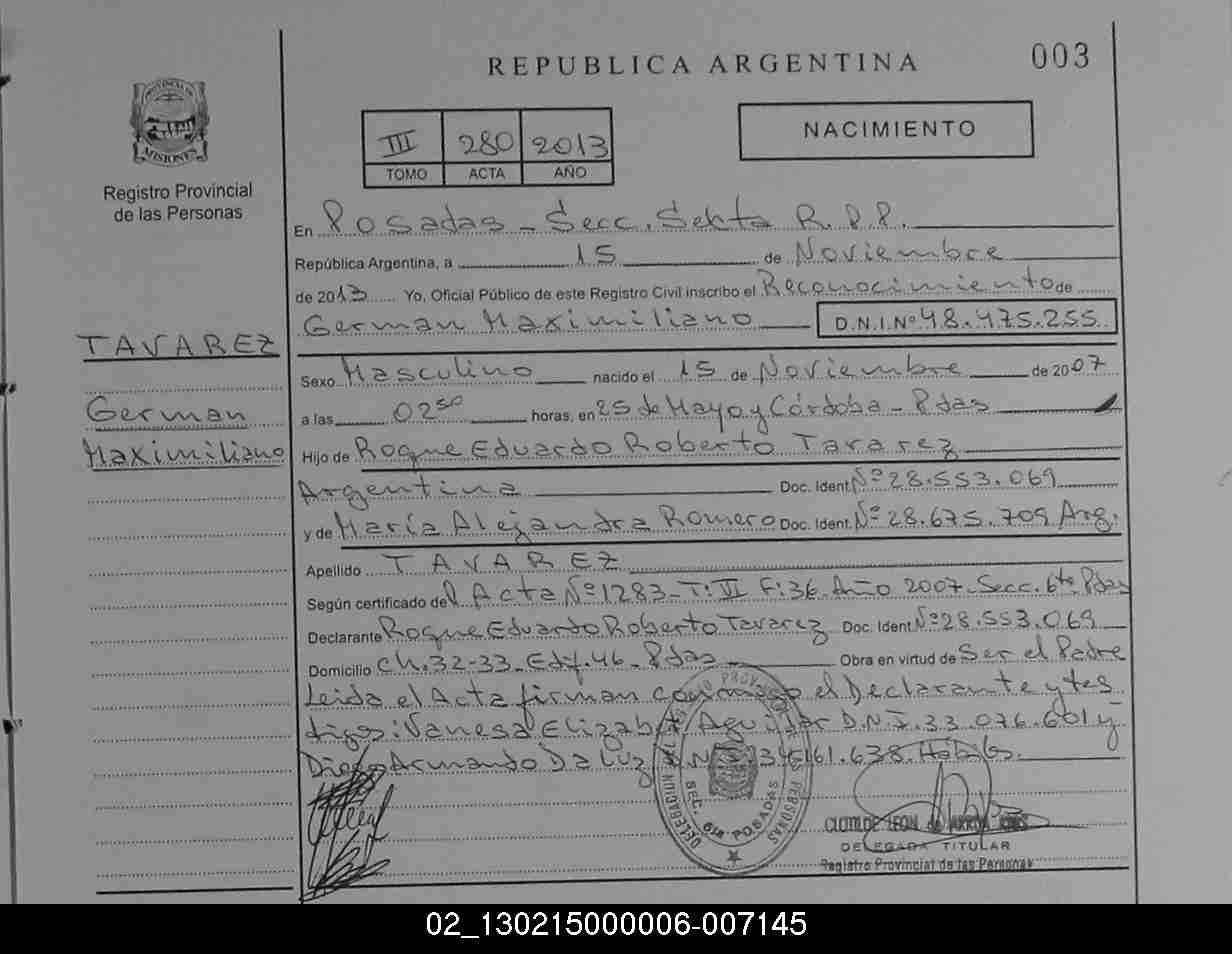 REPUBLICA ARGENTINA
003
PROVINCIA DE
MISIONES
Registro Provincial
de las Personas
III 280 2013
TOMO ACTA AÑO
NACIMIENTO
En Posadas - Secc. Sekta R.P.P.
República Argentina, a 15 de Noviembre
de 2013 Yo, Oficial Público de este Registro Civil inscribo el Reconocimiento de
German Maximiliano D.N.I.Nº 48.475.255
TAVAREZ
German
Maximiliano
Sexo Masculino nacido el 15 de Noviembre de 2007
a las 02⁵⁰ horas, en 25 de Mayo y Córdoba - Pdas
Hijo de Roque Eduardo Roberto Tavarez
Argentina Doc. Ident. Nº 28.553.069
y de María Alejandra Romero Doc. Ident. Nº 28.675.709 Arg.
Apellido TAVAREZ
Según certificado del Acta Nº 1283 - T: VI F: 36 Año 2007. Secc. 6ta Pdas
Declarante Roque Eduardo Roberto Tavarez Doc. Ident. Nº 28.553.069
Domicilio Ch. 32-33 Edf. 46 - Pdas Obra en virtud de Ser el Padre
Leida el Acta firman conmigo el Declarante y tes
tigos: Vanesa Elizabet Aguilar D.N.I. 33.076.601 y
Diego Armando Da Luz D.N.I. 161.638. Hábiles.
DELEGACION
SEC. 6ta POSADAS
CLOTILDE LEON de
DELEGADA TITULAR
Registro Provincial de las Personas
02_130215000006-007145